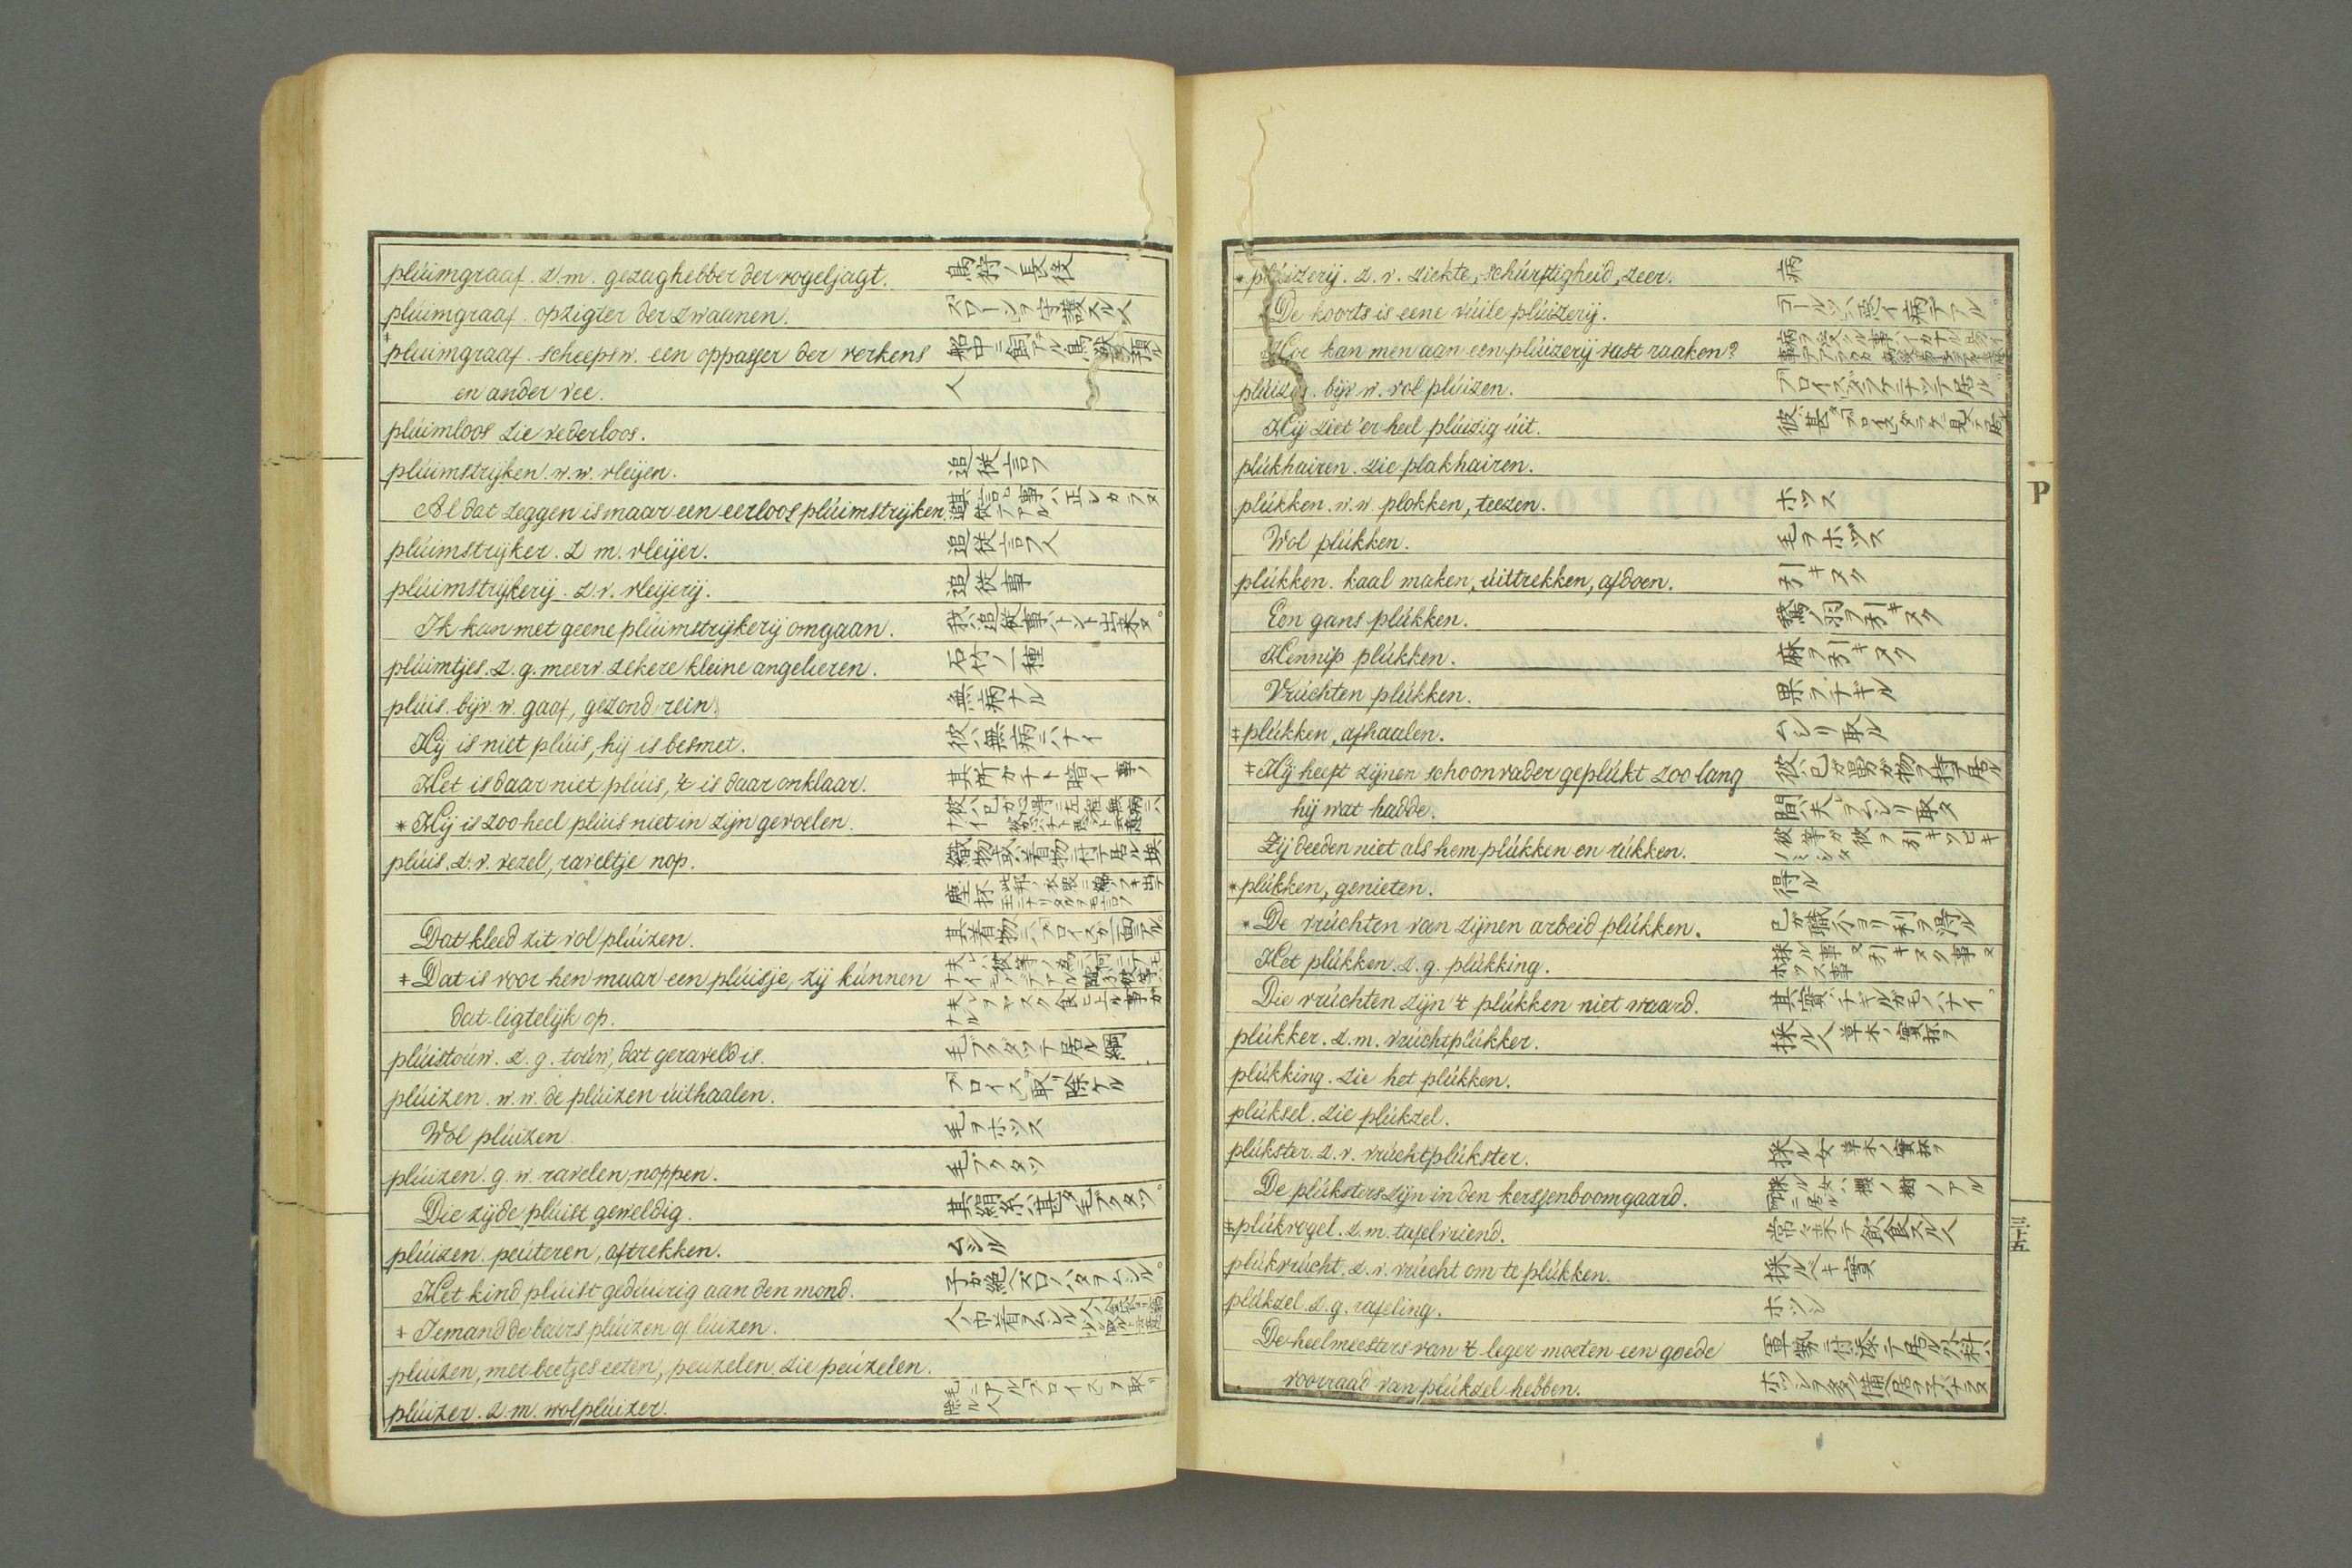 plúimgraaf. z. m. gezaghebber der vogeljagt. 鳥狩ノ長役
plúimgraaf. opzigter der zwaanen. ズワーンヲ守護スル人
*pluimgraaf. scheepsw. een oppasser der verkens 船中ニ飼テアル鳥獣ヲ預ル
en ander vee. 人
plúimloos zie vederloos.
plúimstrijken. w. w. vleijen. 追従言フ
Al dat zeggen is maar een eerloos plúimstrijken 其言フ事ハ正シカラヌ追従テアル
plúimstrijker. z m. vleijer. 追従言フ人
plúimstrijkerij. z. v. vleijerij. 追従事
Ik kan met geene plúimstrijkerij omgaan. 我ハ追従事ハトント出来ヌ。
plúimtjes. z. g. meerv. zekere kleine angelieren. 石竹ノ一種
plúis. bijv. w. gaaf, gezond rein. 無病ナル
Hij is niet plúis, hij is besmet. 彼ハ無病ニハナイ
Het is daar niet plúis, 't is daar onklaar. 其所ガチト暗イ事ノ
*Hij is zoo heel plúis niet in zijn gevoelen.
plúis. z. v. vezel, raveltje nop. 織物或ハ着物ニ付テ居ル埃
塵抔
Dat kleed zit vol plúizen. 其着物ニハプロイズガ一面ニアル。
‡Dat is voor hen maar een plúisje, zij kúnnen
dat ligtelijk op.
plúistoúw. z. g. toúw, dat geraveld is. 毛ブクタツテ居ル綱
plúizen. w. w. de plúizen úithaalen. プロイズヲ取リ除ケル
Wol plúizen. 毛ヲホツス
plúizen. g. w. ravelen, noppen. 毛ブクタツ
Die zijde plúist geweldig. 其絹糸ハ甚タ毛ブクタツ。
plúizen. peúteren, aftrekken. ムシル
Het kind plúist gedúúrig aan den mond. 子ガ絶ヘズロバタヲムシル。
‡Iemand de beúrs plúizen of lúizen. 人ノ巾着ヲムシル
plúizen, met beetjes eeten, peuzelen. zie peúzelen.
plúizer. z. m. wolplúizer. 毛ニアルプロイズヲ取リ除ル人
*plúizerij. z. v. ziekte, schúrftigheid, zeer. 病
*De koorts is eene vúile plúizerij. コールツハ悪イ病テアル。
Hoe kan men aan een plúizerij vast raaken?
plúizig. bijv. w. vol plúizen. プロイズダラケニナツテ居ル
Hij ziet 'er heel plúizig úit. 彼ハ甚タプロイズダラケニ見ヘテ居ル
plúkhairen. zie plakhairen.
plúkken. w. w. plokken, teezen. ホツス
Wol plúkken. 毛ヲホツス
plúkken. kaal maken, úittrekken, afdoen. 引キヌク
Een gans plúkken. 鵞ノ羽ヲ引キヌク
Hennip plúkken. 麻ヲ引キヌク
Vrúchten plúkken. 果ヲチギル
‡plúkken, afhaalen. ムシリ取ル
‡Hij heeft zijnen schoonvader geplúkt zoo lang 彼ハ己ガ舅ガ物ヲ持テ居ル
hij wat hadde. 間ハ夫レヲムシリ取タ
Zij deeden niet als hem plúkken en rúkken. 彼等ガ彼ヲ引キツビキノミシタ
*plúkken, genieten. 得ル
*De vrúchten van zijnen arbeid plúkken. 己ガ職分ヨリ利ヲ得ル
Het plúkken. z. g. plúkking. 採ル事又引キヌク事又ホツス事
Die vrúchten zijn 't plúkken niet waard. 其實ハチギルガモノハナイ。
plúkker. z. m. vrúchtplúkker. 採ル人草木ノ實抔ヲ
plúkking. zie het plúkken.
plúksel. zie plúkzel.
plúkster. z. v. vrúchtplúkster. 採ル女草木ノ實抔ヲ
De plúksters zijn in den kerssenboomgaard. 採ル女ハ櫻ノ樹ノアル所ニ居ル
‡plúkvogel. z. m. tafelvriend. 常々来テ飲食スル人
plúkvrúcht. z. v. vrúcht om te plúkken. 採ルベキ實
plúkzel. z. g. rafeling. ホツシ
De heelmeesters van 't leger moeten een goede 軍勢ニ付添テ居ル外科ハ
voorraad van plúkzel hebben. ホツシヲ多ク備ヘ居ラネバナラヌ
P
三十五